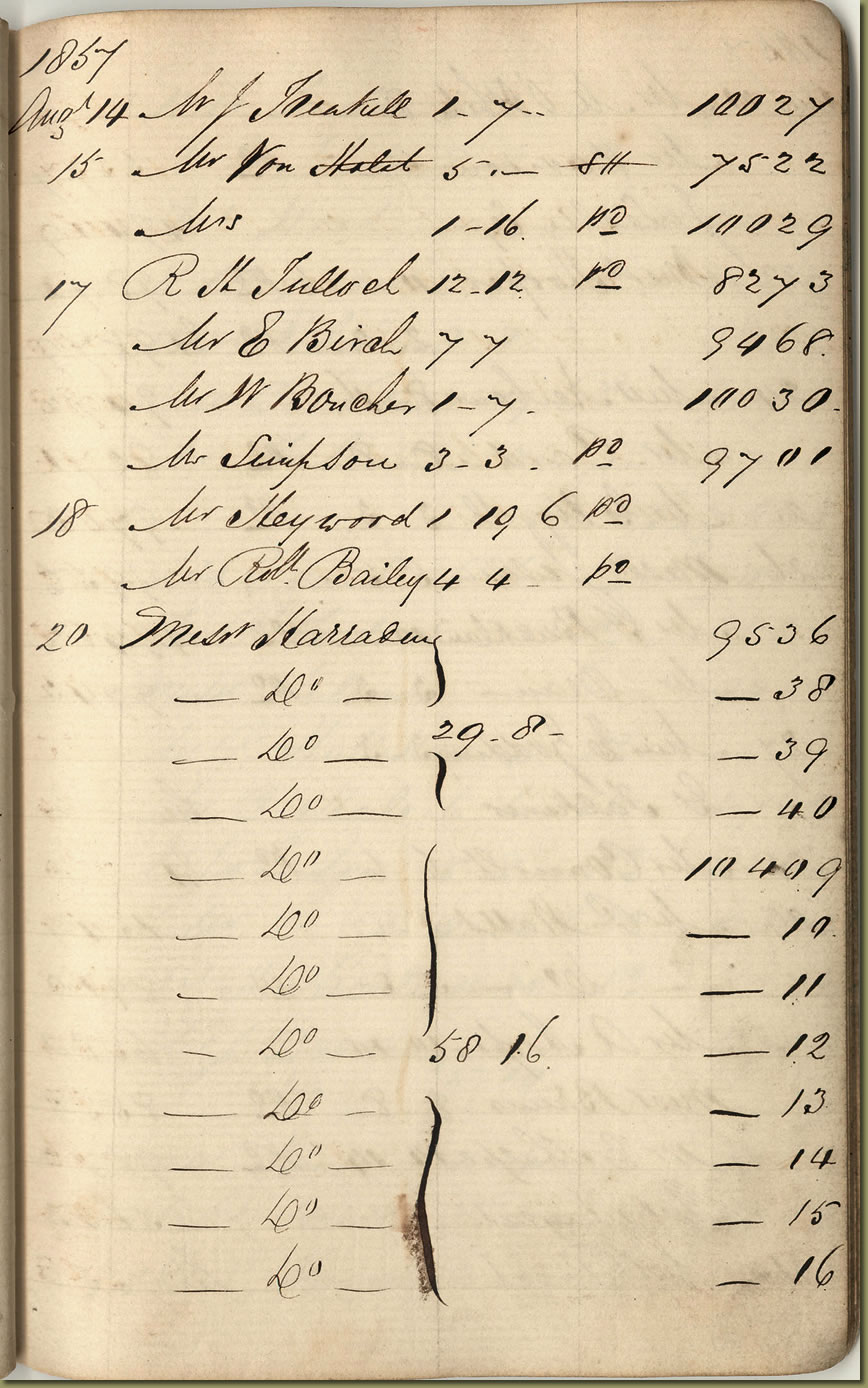 1857
Augt 14 Mr J Treakell 1 - 7 - - 10027
15 Mr Von Holst 5 . — 8H 7522
Mrs 1 - 16. pd 10029
17 R H Tulloch 12 - 12 pd 8273
Mr E Birch 7 7 9468.
Mr W Boucher 1 - 7 . 10030.
Mr Simpson 3 - 3 . pd 9701
18 Mr Heywood 1 10 6 pd
Mr Robt. Bailey 4 4 - pd
20 Messrs Harraden 9536
— Do — — 38
29 - 8 -
— Do — — 39
— Do — — 40
— Do — 10409
— Do — — 10.
— Do — — 11
— Do — 58 16. — 12
— Do — — 13
— Do — — 14
— Do — — 15
— Do — — 16